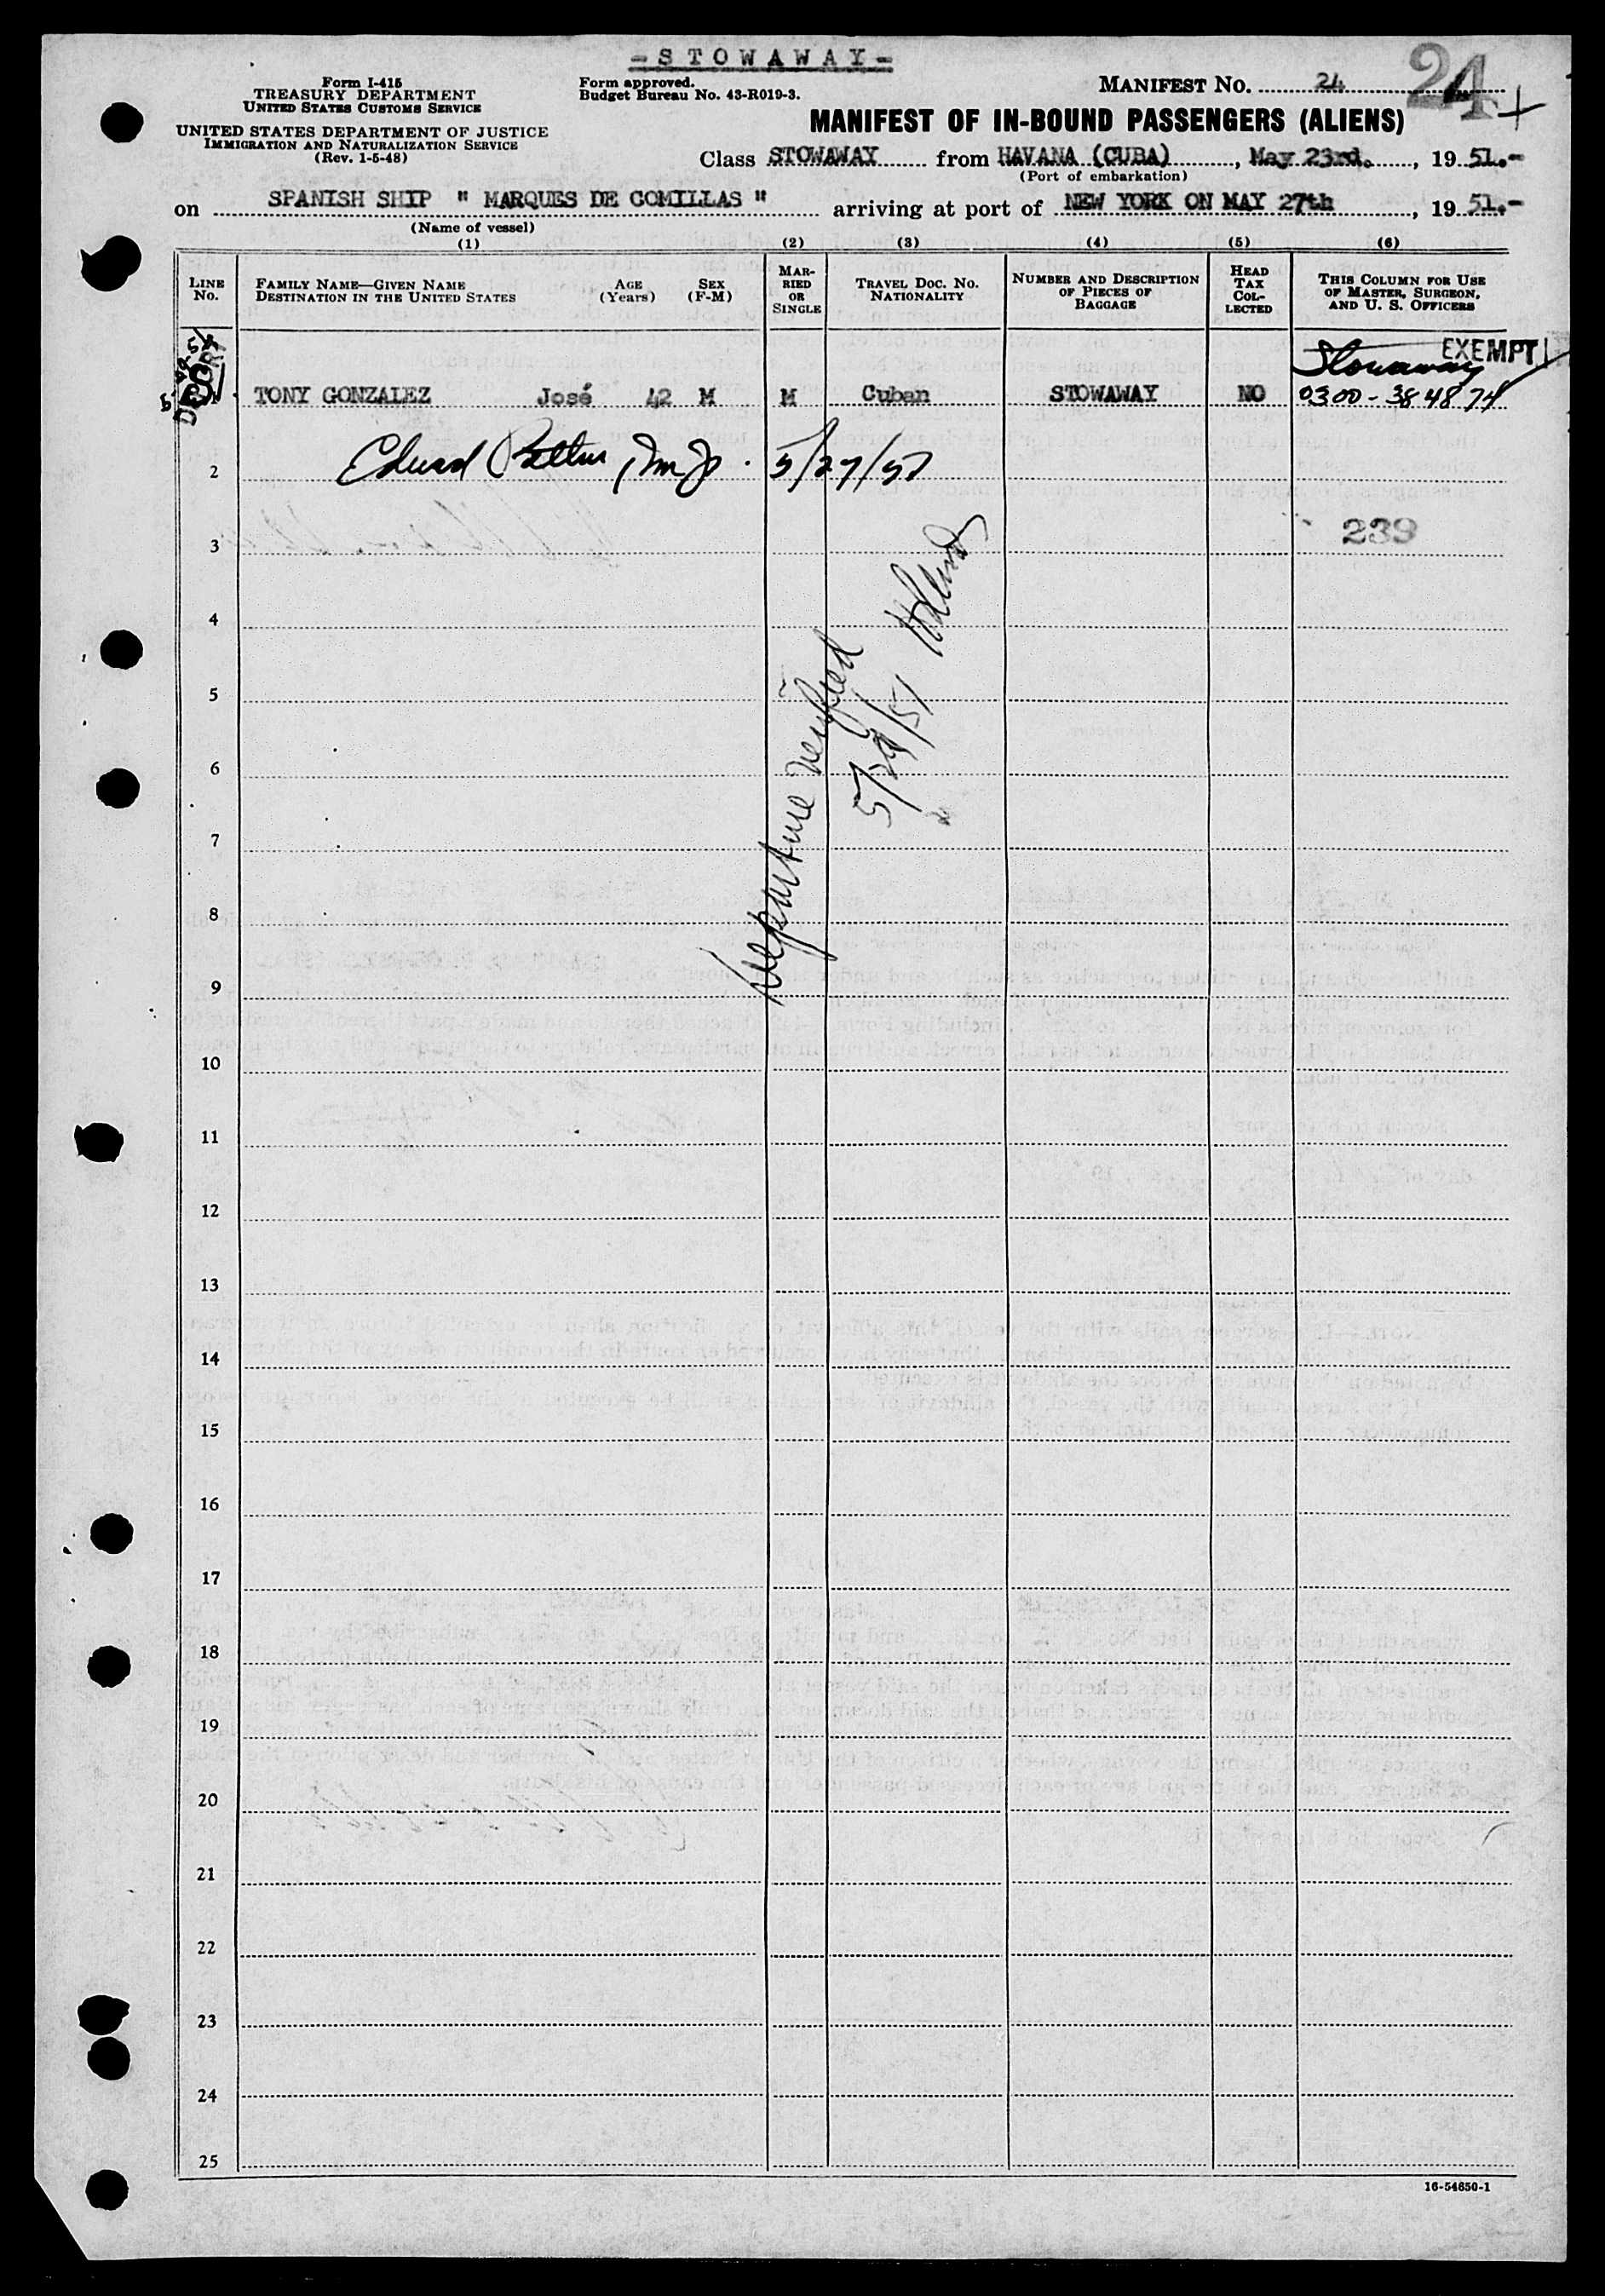 - S T O W A W A Y -
Form I-415
TREASURY DEPARTMENT
UNITED STATES CUSTOMS SERVICE
UNITED STATES DEPARTMENT OF JUSTICE
IMMIGRATION AND NATURALIZATION SERVICE
(Rev. 1-5-48)
Form approved.
Budget Bureau No. 43-R019-3.
MANIFEST No. 24
24
MANIFEST OF IN-BOUND PASSENGERS (ALIENS)
Class STOWAWAY from HAVANA (CUBA), May 23rd., 19 51.-
(Port of embarkation)
on SPANISH SHIP " MARQUES DE COMILLAS " arriving at port of NEW YORK ON MAY 27th, 19 51.-
(Name of vessel)
(1) (2) (3) (4) (5) (6)
LINE No.
FAMILY NAME—GIVEN NAME
DESTINATION IN THE UNITED STATES
AGE (Years)
SEX (F-M)
MARRIED OR SINGLE
TRAVEL DOC. NO. NATIONALITY
NUMBER AND DESCRIPTION OF PIECES OF BAGGAGE
HEAD TAX COLLECTED
THIS COLUMN FOR USE OF MASTER, SURGEON, AND U. S. OFFICERS
EXEMPT
Stowaway
1 TONY GONZALEZ José 42 M M Cuban STOWAWAY NO 0300-3848 74
2 Edward 5/27/51
3 239
4
5
6
7
8
9
Departure verified
5/29/51
10
11
12
13
14
15
16
17
18
19
20
21
22
23
24
25
16-54650-1